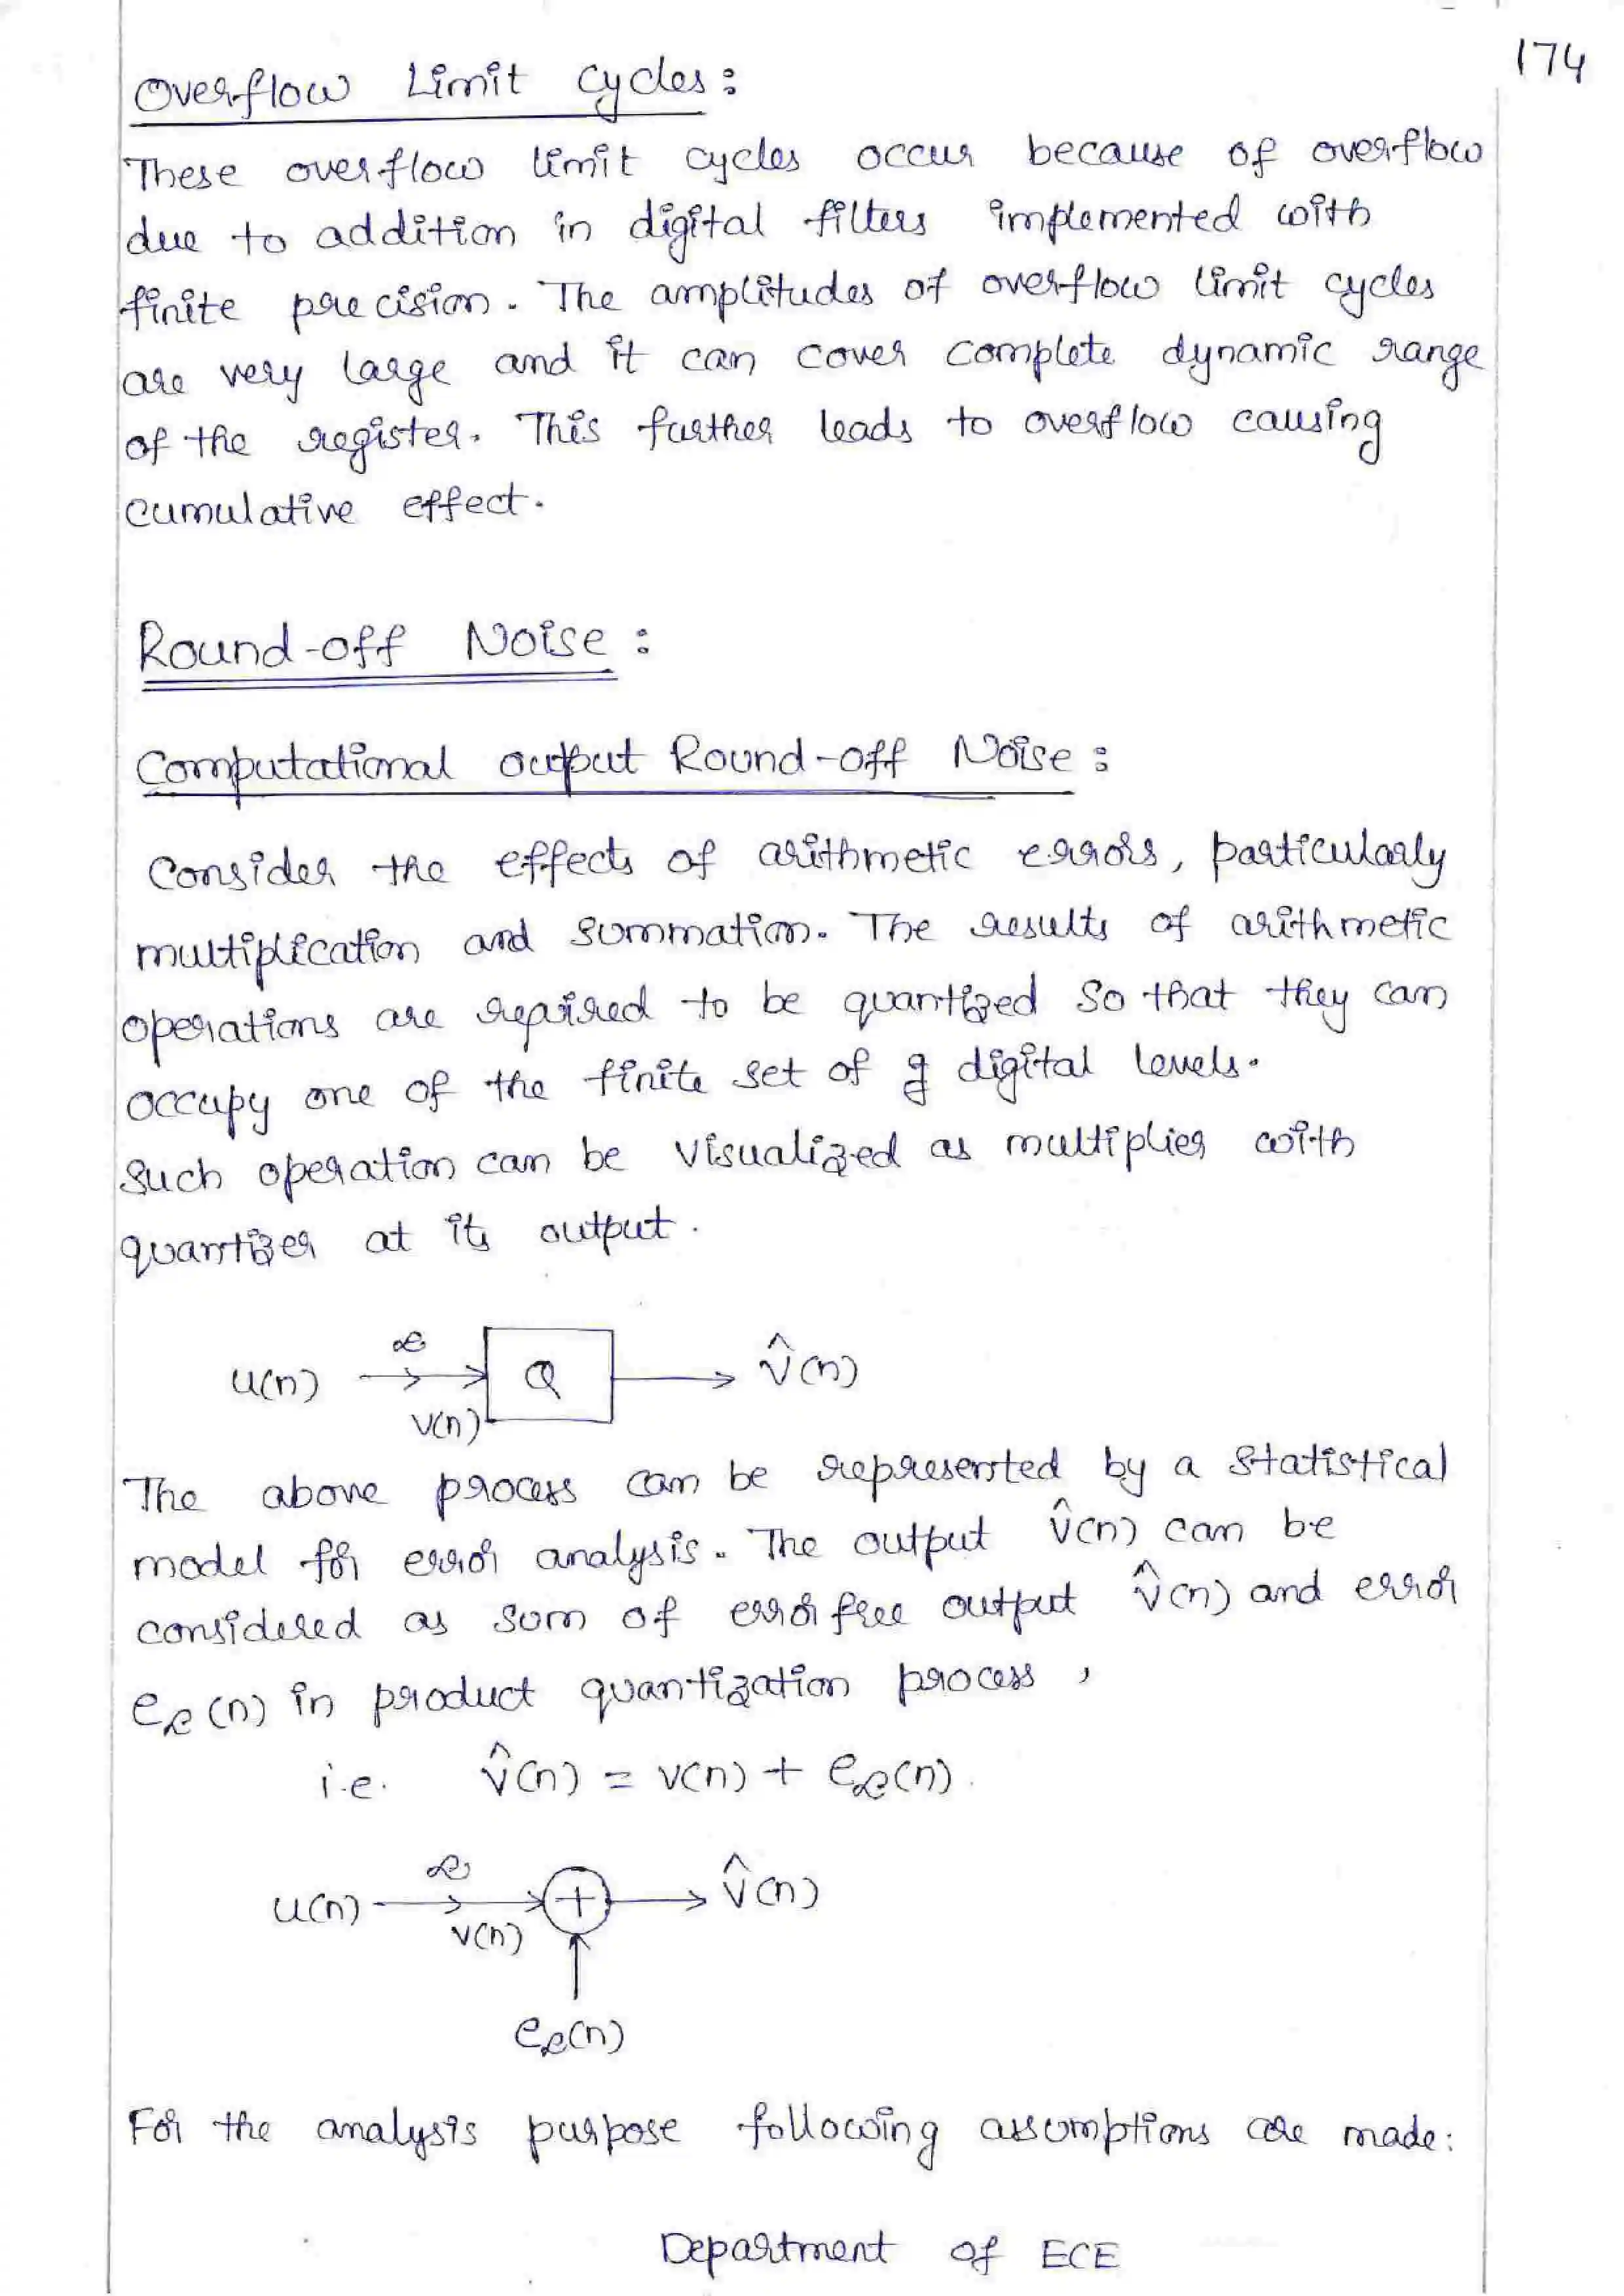 174
Overflow Limit Cycles :
These overflow limit cycles occur because of overflow
due to addition in digital filters implemented with
finite precision. The amplitudes of overflow limit cycles
are very large and it can cover complete dynamic range
of the register. This further leads to overflow causing
cumulative effect.
Round-off Noise :
Computational output Round-off Noise :
Consider the effects of arithmetic errors, particularly
multiplication and summation. The results of arithmetic
operations are required to be quantized so that they can
occupy one of the finite set of digital levels.
Such operation can be visualized as multiplier with
quantizer at its output.
u(n) α v(n) Q v̂(n)
The above process can be represented by a statistical
model for error analysis. The output v̂(n) can be
considered as sum of error free output v̂(n) and error
eα(n) in product quantization process,
i.e. v̂(n) = v(n) + eα(n).
u(n) α v(n) + v̂(n)
eα(n)
For the analysis purpose following assumptions are made:
Department of ECE